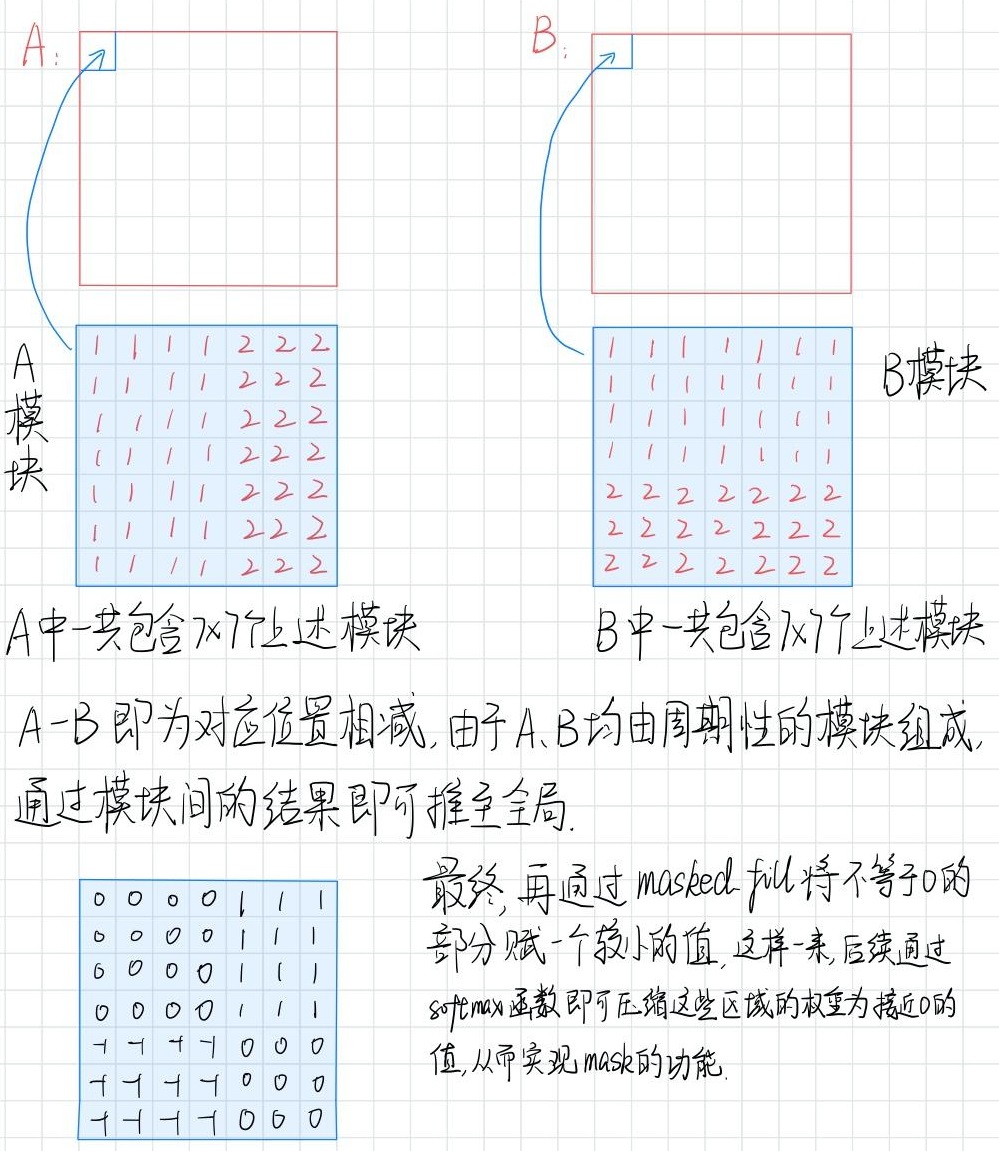 A:
B:
A模块
1 1 1 1 2 2 2
1 1 1 1 2 2 2
1 1 1 1 2 2 2
1 1 1 1 2 2 2
1 1 1 1 2 2 2
1 1 1 1 2 2 2
1 1 1 1 2 2 2
1 1 1 1 1 1 1
1 1 1 1 1 1 1
1 1 1 1 1 1 1
1 1 1 1 1 1 1
2 2 2 2 2 2 2
2 2 2 2 2 2 2
2 2 2 2 2 2 2
B模块
A中一共包含7×7个上述模块
B中一共包含7×7个上述模块
A-B即为对应位置相减,由于A、B均由周期性的模块组成,
通过模块间的结果即可推至全局.
0 0 0 0 1 1 1
0 0 0 0 1 1 1
0 0 0 0 1 1 1
0 0 0 0 1 1 1
-1 -1 -1 -1 0 0 0
-1 -1 -1 -1 0 0 0
-1 -1 -1 -1 0 0 0
最终,再通过masked_fill将不等于0的
部分赋一个较小的值,这样一来,后续通过
softmax函数即可压缩这些区域的权重为接近0的
值,从而实现mask的功能.